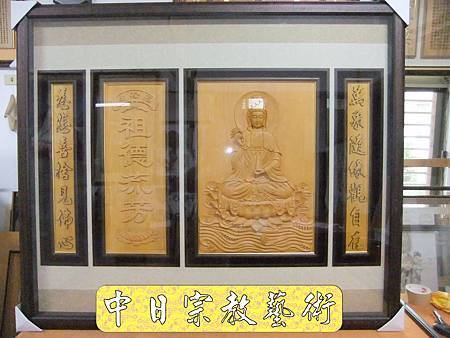 萬象隨緣觀自在
祖德流芳
慈悲喜捨見佛心
中日宗教藝術